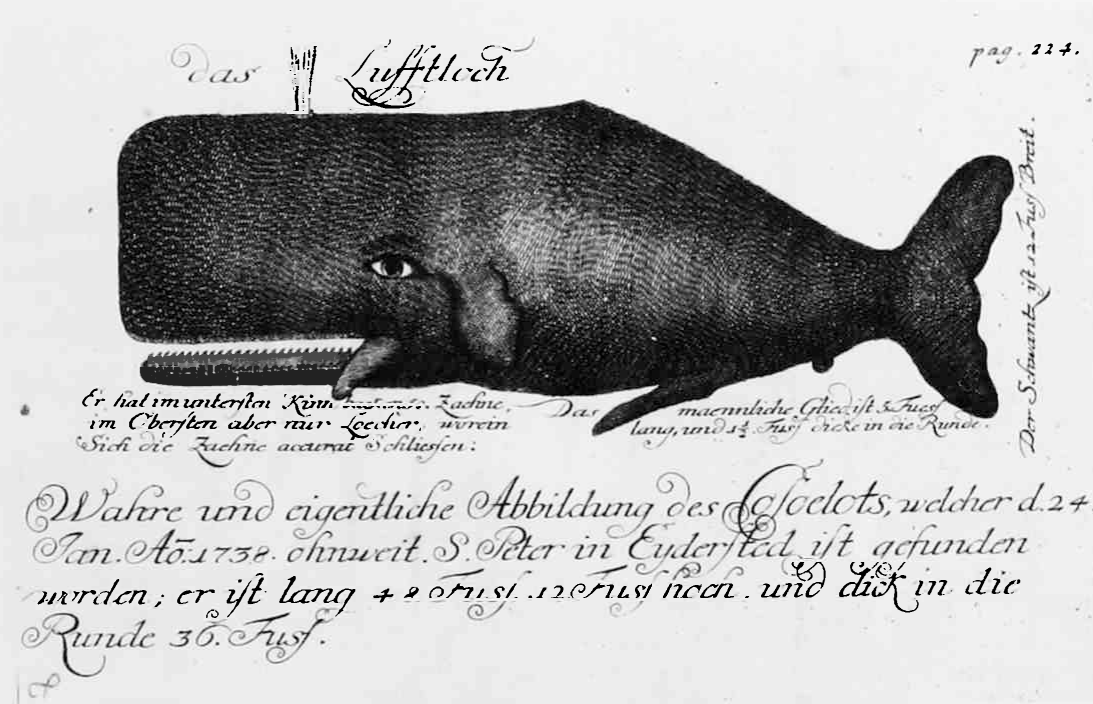 pag. 224.
das Lufftloch
Der Schwantz ist 12 Fuss Breit.
Er hat im untersten Kinn Zaehne,
im Obersten aber nur Loecher, worein
Sich die Zaehne accurat Schliessen:
Das maennliche Glied ist 5 Fuss
lang, und 1½ Fuss dicke in die Runde.
Wahre und eigentliche Abbildung des welcher d. 24.
Jan. Ao. 1738. ohnweit S. Peter in Eydersted ist gefunden
worden; er ist lang 48 Fuss. 12 Fuss hoch. und dick in die
Runde 36. Fuss.